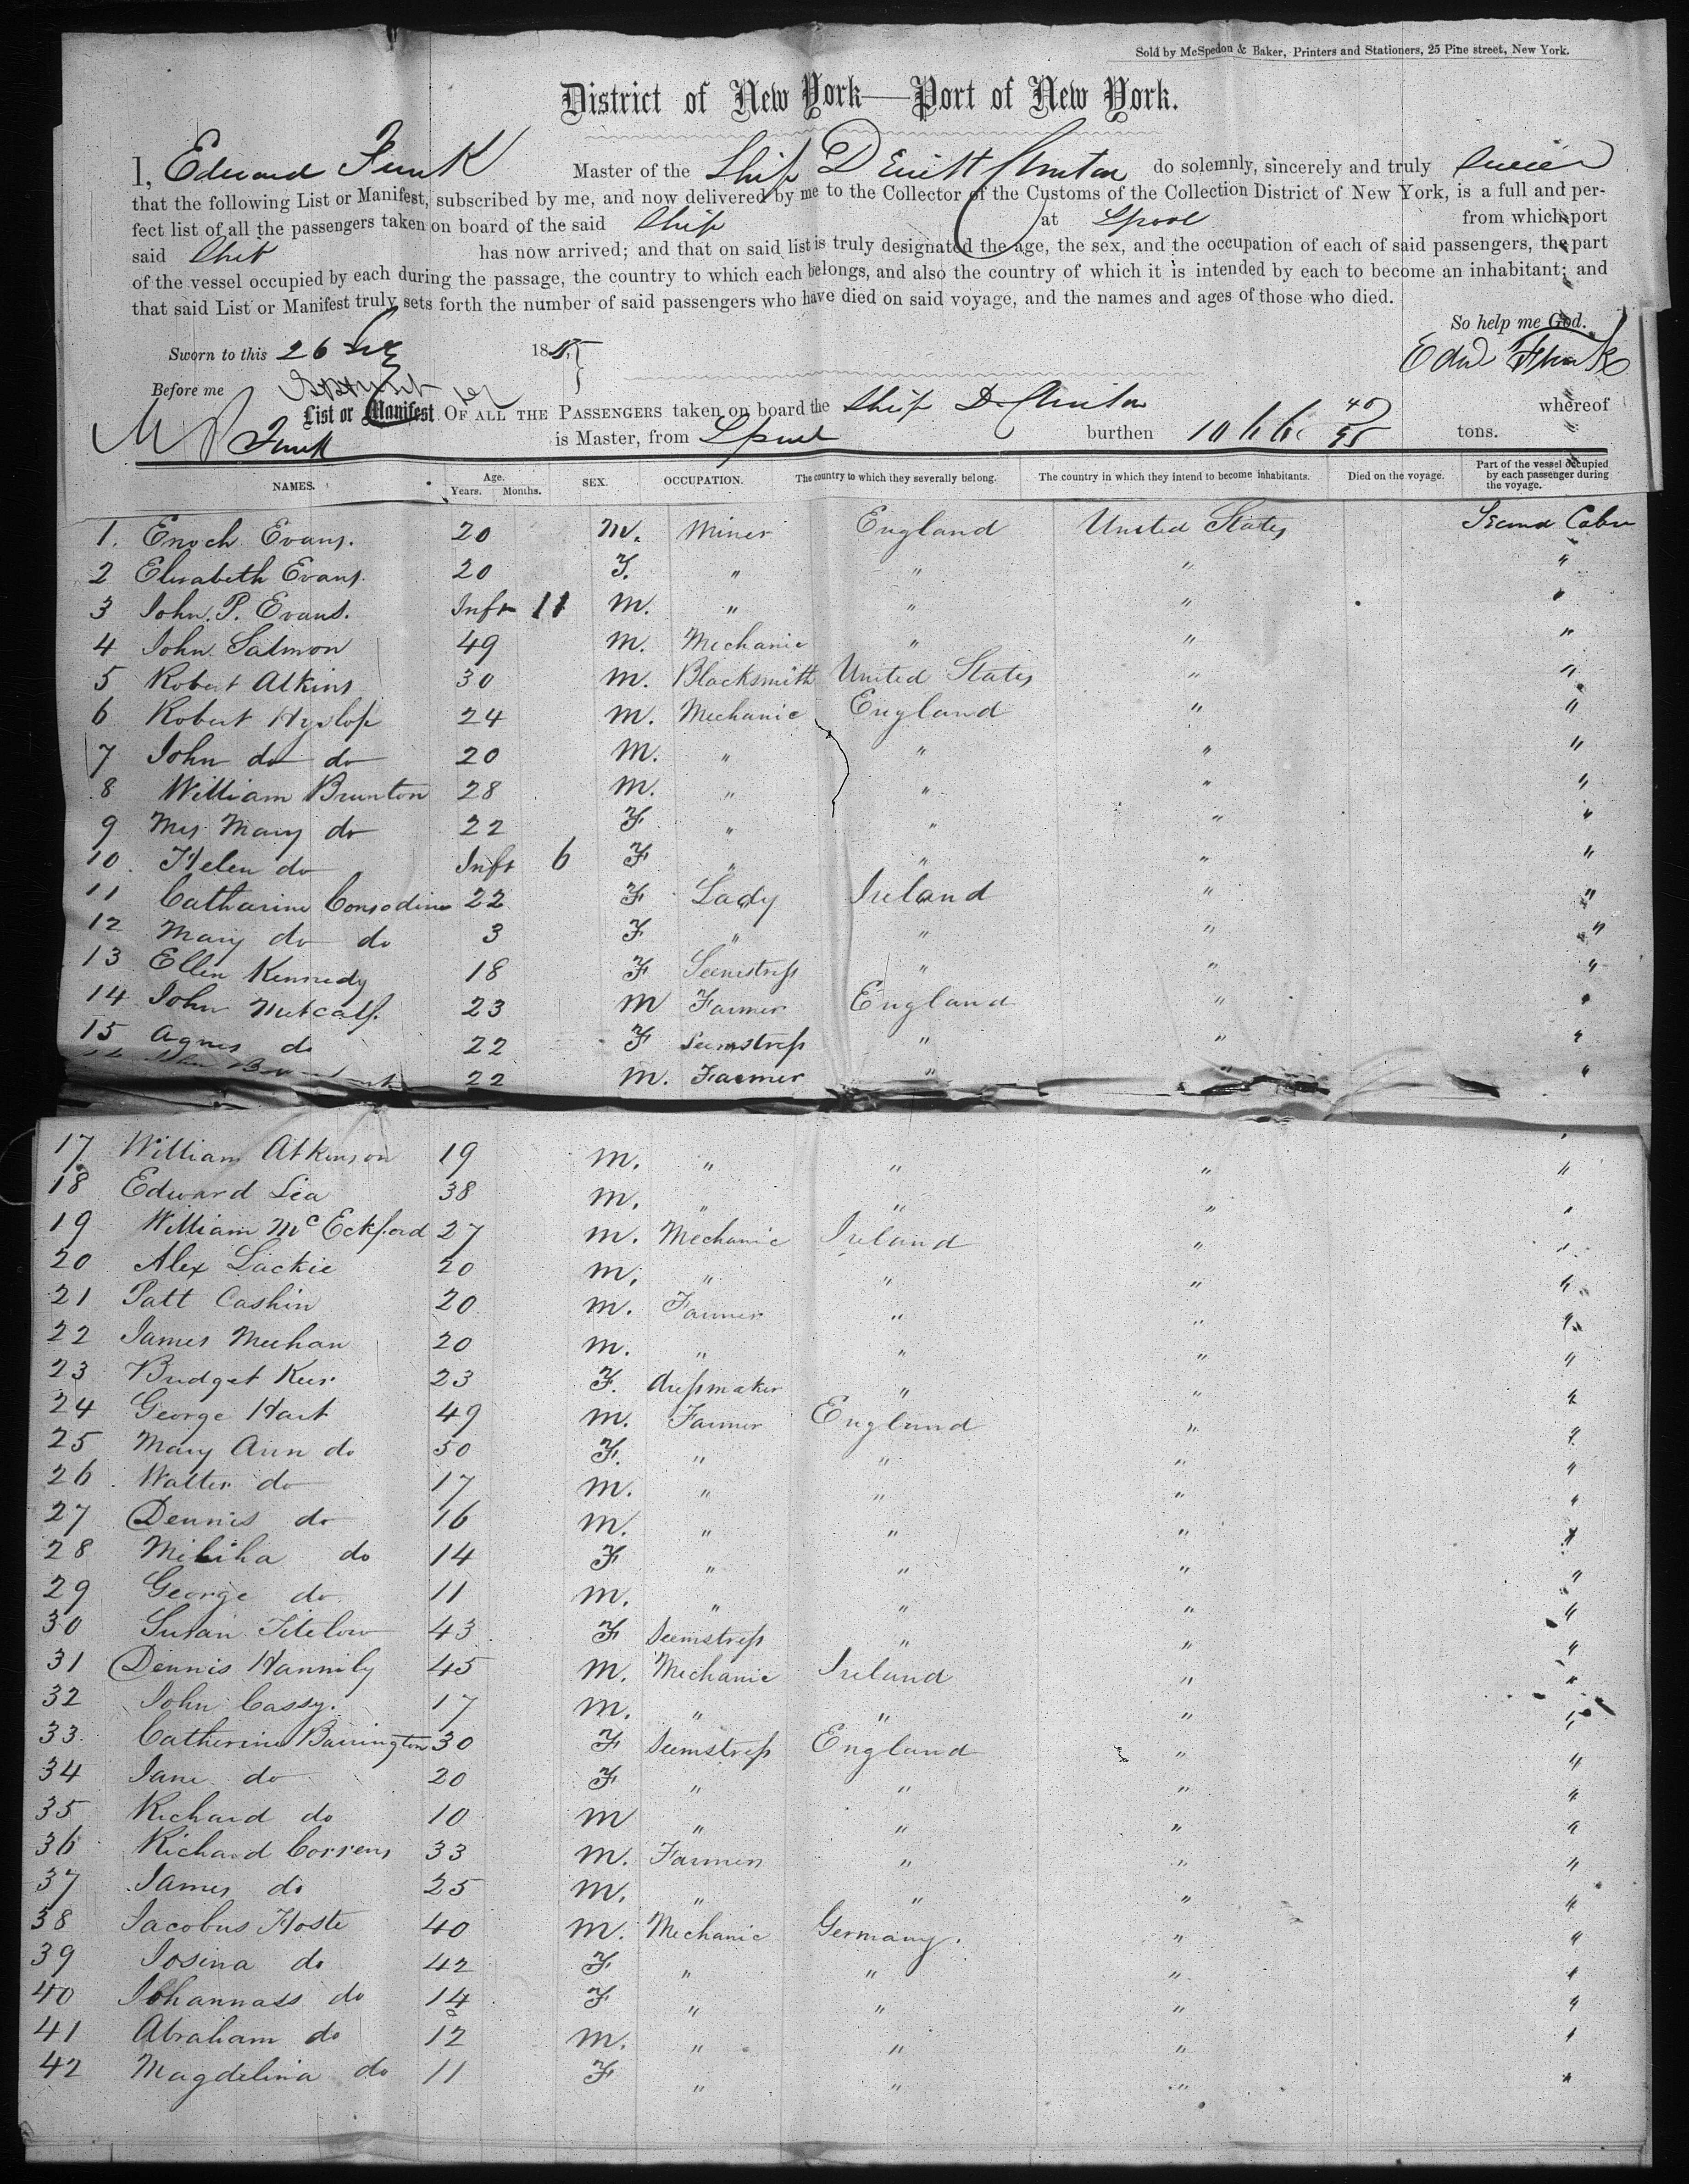 Sold by McSpedon & Baker, Printers and Stationers, 25 Pine street, New York.
District of New York—Port of New York.
I, Edward Funk Master of the Ship DeWitt Clinton do solemnly, sincerely and truly swear
that the following List or Manifest, subscribed by me, and now delivered by me to the Collector of the Customs of the Collection District of New York, is a full and per-
fect list of all the passengers taken on board of the said Ship at Lpool from which port
said Ship has now arrived; and that on said list is truly designated the age, the sex, and the occupation of each of said passengers, the part
of the vessel occupied by each during the passage, the country to which each belongs, and also the country of which it is intended by each to become an inhabitant; and
that said List or Manifest truly sets forth the number of said passengers who have died on said voyage, and the names and ages of those who died.
So help me God.
Sworn to this 26 1855 Edwd Funk
Before me
List or Manifest OF ALL THE PASSENGERS taken on board the Ship D. Clinton whereof
Funk is Master, from Lpool burthen 1066 40/95 tons.
NAMES. Age. Years. Months. SEX. OCCUPATION. The country to which they severally belong. The country in which they intend to become inhabitants. Died on the voyage. Part of the vessel occupied by each passenger during the voyage.
1. Enoch Evans. 20 M. Miner England United States Second Cabin
2 Elisabeth Evans. 20 F. " " " "
3 John. P. Evans. Inft 11 M. " " " "
4 John Salmon 49 M. Mechanic " " "
5 Robert Atkins 30 M. Blacksmith United States " "
6 Robert Hyslop 24 M. Mechanic England " "
7 John do do 20 M. " " " "
8 William Brunton 28 M. " " " "
9 Mrs Mary do 22 F " " " "
10 Helen do Inft 6 F " " " "
11 Catharine Consodine 22 F Lady Ireland " "
12 Mary do do 3 F " " " "
13 Ellen Kennedy 18 F Seemstress " " "
14 John Metcalf. 23 M Farmer England " "
15 Agnes do 22 F Seemstress " " "
22 M. Farmer " " "
17 William Atkinson 19 M. " " " "
18 Edward Lea 38 M. " " " "
19 William McEckford 27 M. Mechanic Ireland " "
20 Alex Lackie 20 M. " " " "
21 Patt Cashin 20 M. Farmer " " "
22 James Meehan 20 M. " " " "
23 Bridget Keer 23 F. dressmaker " " "
24 George Hart 49 M. Farmer England " "
25 Mary Ann do 50 F. " " " "
26 Walter do 17 M. " " " "
27 Dennis do 16 M. " " " "
28 do 14 F " " " "
29 George do 11 M. " " " "
30 Susan Titelow 43 F Seemstress " " "
31 Dennis Hannily 45 M. Mechanic Ireland " "
32 John Cassy. 17 M. " " " "
33. Catherine Barrington 30 F Seemstress England " "
34 Jane do 20 F " " " "
35 Richard do 10 M " " " "
36 Richard Correns 33 M. Farmer " " "
37 James do 25 M. " " " "
38 Jacobus Hoste 40 M. Mechanic Germany. " "
39 Josina do 42 F " " " "
40 Johannass do 14 F " " " "
41 Abraham do 12 M. " " " "
42 Magdelina do 11 F " " " "